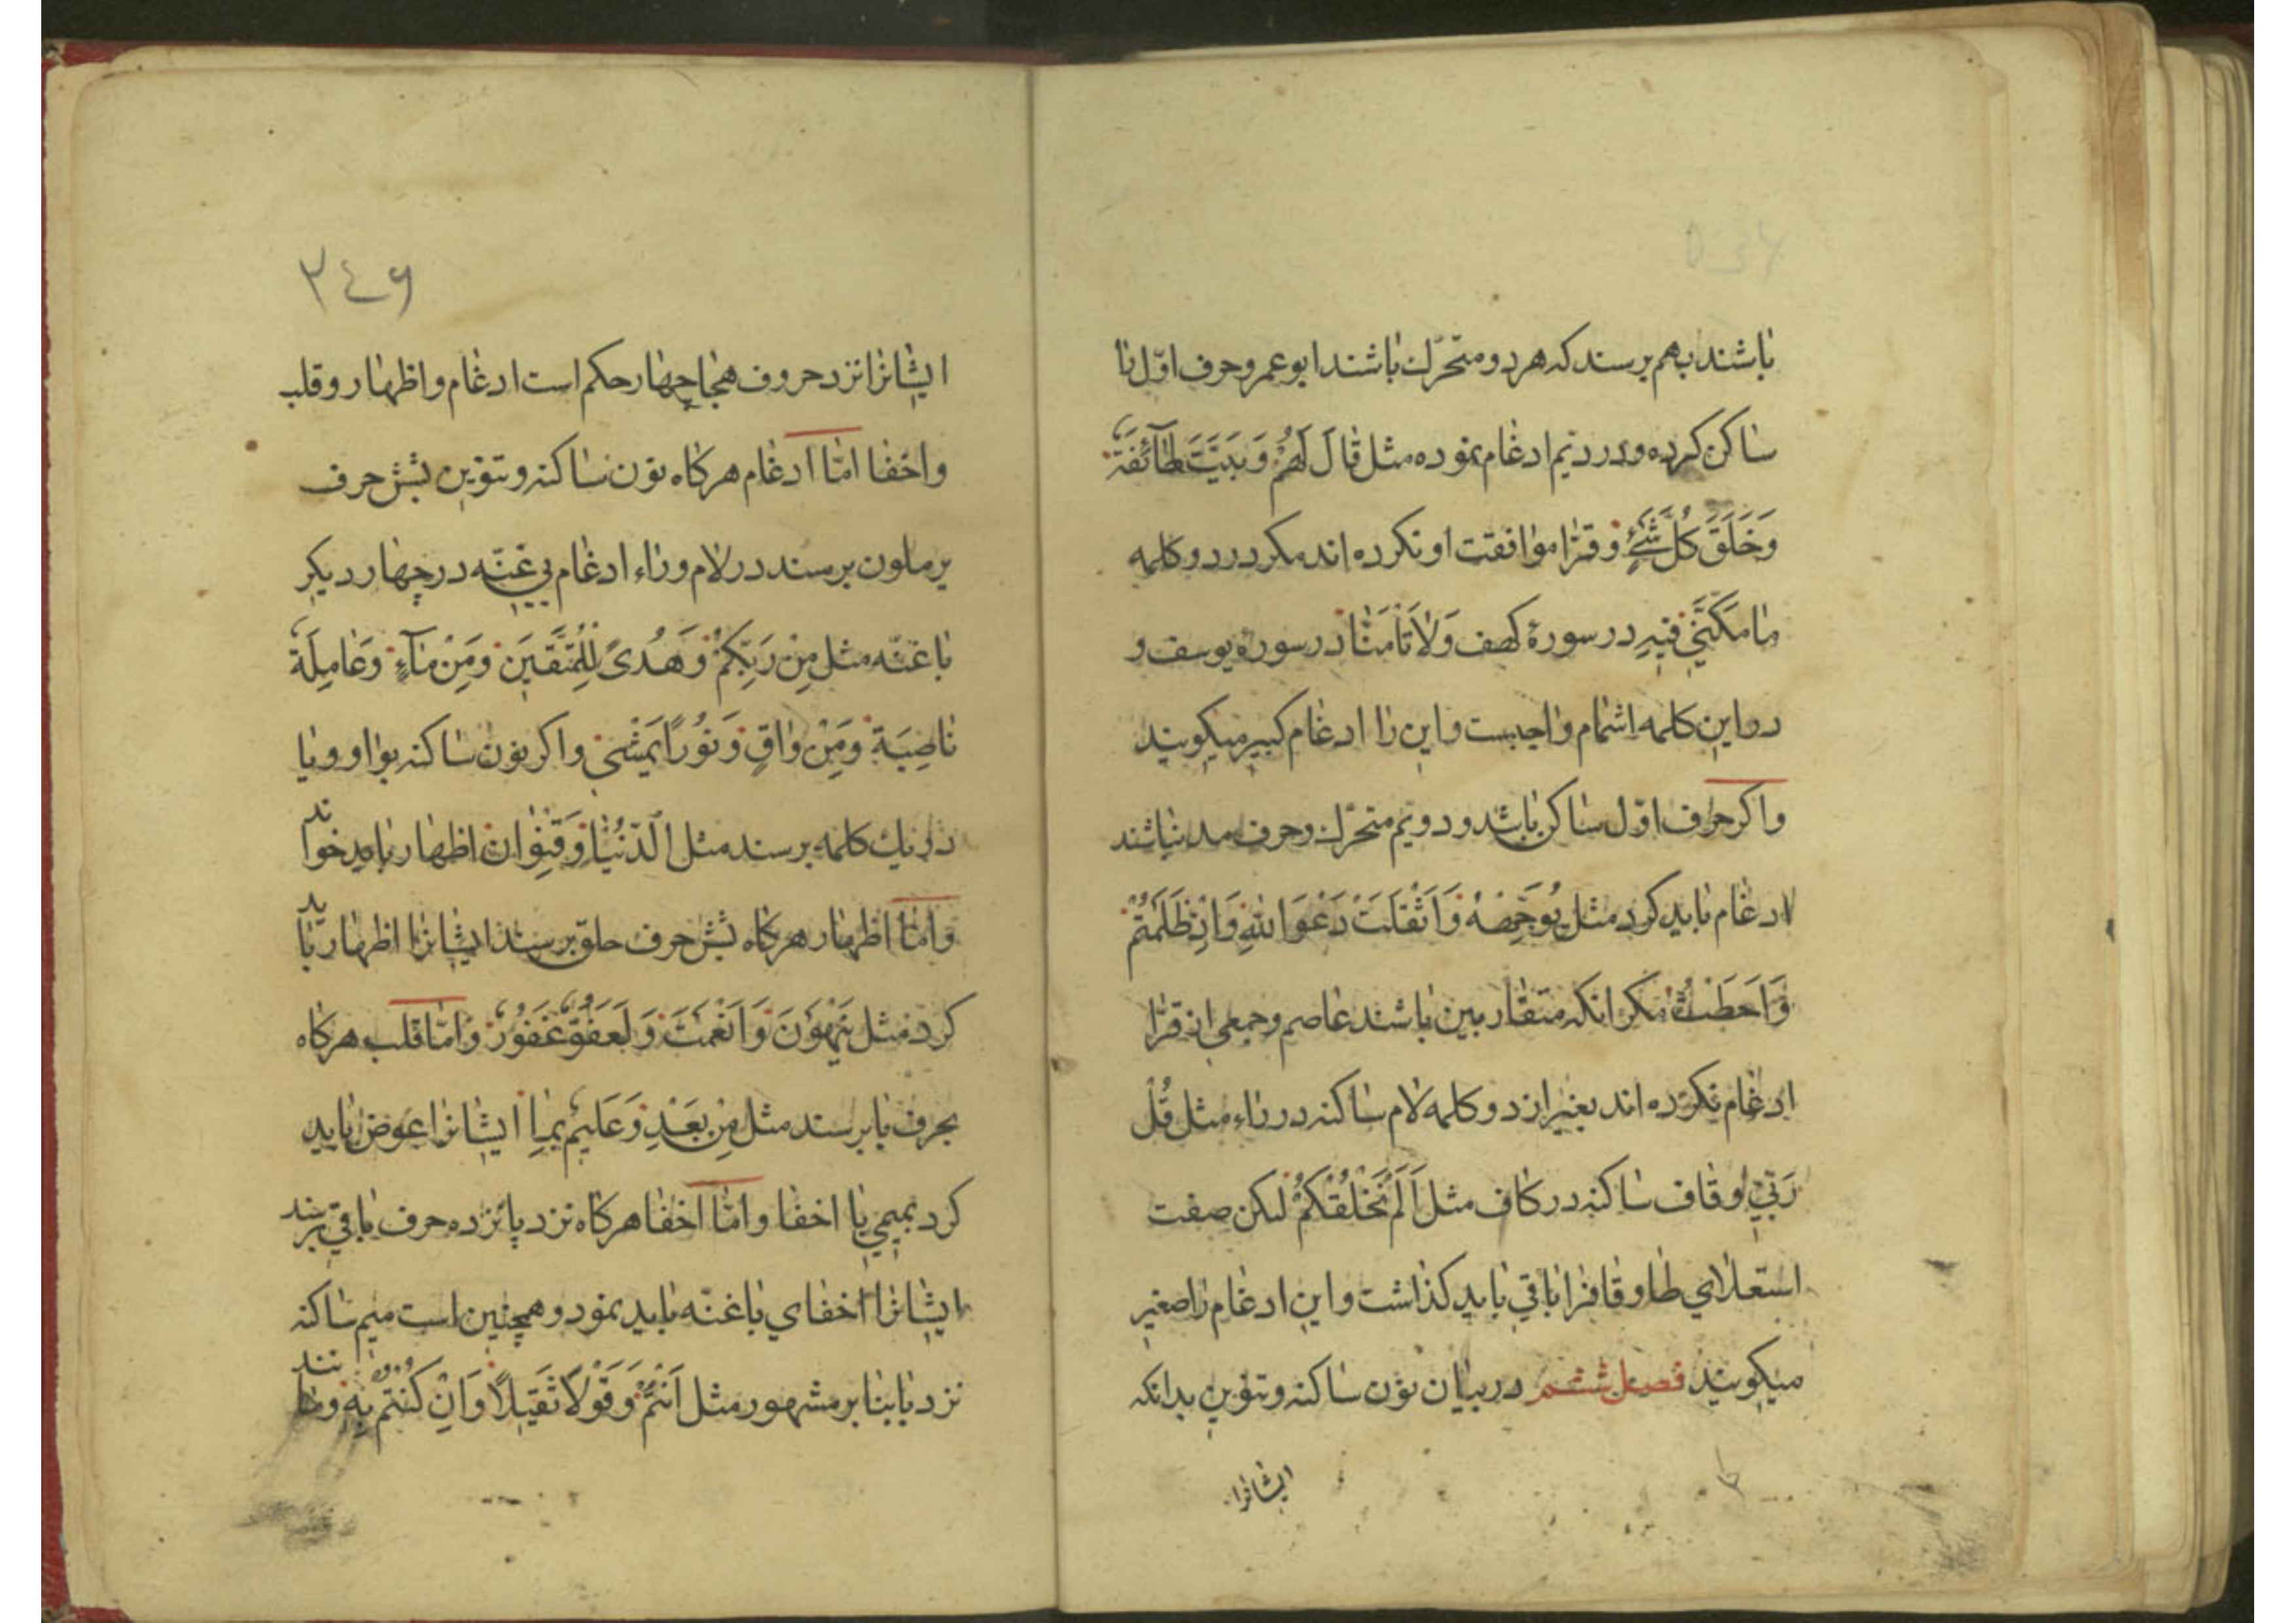 باشند بهم برسند که هر دو متحرّك باشند ابو عمرو حرف اوّل را
ساکن کرده و در دیم ادغام نموده مثل قَالَ لَهُمْ وَ بَيَّتَ طَآئِفَةٌ
وَ خَلَقَ كُلَّ شَيْءٍ و قرّا موافقت او نکرده اند مکر در دو کلمه
ما مَكَّنّي فيهِ در سورهٔ کهف وَ لا تَأمَنّا در سورهٔ یوسف و
در این کلمه اشمام واجبست و این را ادغام کبیر میکویند
و اکر حرف اوّل ساکن باشد و دویم متحرّك و حرف مد نباشند
ادغام باید کرد مثل يُوَجِّههُ وَ اَثْقَلَتْ دَعَوَا اللهَ وَ اِذْ ظَلَمْتُمْ
وَ اَحَطْتُ مکر انکه متقاربین باشند عاصم و جمعی از قرّا
ادغام نکرده اند بغیر از دو کلمه لام ساکنه در راء مثل قُلْ
رَبّي و قاف ساکنه در کاف مثل اَلَمْ نَخْلُقْكُمْ لکن صفت
استعلای طا و قافرا باقی باید کذاشت و این ادغام را صغیر
میکویند فصل ششم در بیان نون ساکنه و تنوین بدانکه
ایشانرا
٢٤٩
ایشانرا نزد حروف هجا چهار حکم است ادغام و اظهار و قلب
و اخفا امّا ادغام هرکاه نون ساکنه و تنوین بشش حرف
یرملون برسند در لام و راء ادغام بی غنّه در چهار دیکر
با غنّه مثل مِنْ رَبِّكُمْ وَ هُدىً لِلْمُتَّقينَ وَ مِنْ مآءٍ وَ عامِلَةٌ
ناصِبَةٌ وَ مِنْ واقٍ وَ نُوراً يَمْشي و اکر نون ساکنه بواو و یا
در یك کلمه برسند مثل الدُّنْيا وَ قِنْوان اظهار باید خواند
و امّا اظهار هرکاه بشش حرف حلق برسند ایشانرا اظهار باید
کرد مثل يَنْهَوْنَ وَ اَنْعَمْتَ وَ لَعَفُوٌّ غَفُورٌ و امّا قلب هرکاه
بحرف با برسند مثل مِنْ بَعْدِ وَ عَليمٌ بِما ایشانرا عوض باید
کرد بمیمی با اخفا و امّا اخفا هرکاه نزد پانزده حرف باقی برسند
ایشانرا اخفای با غنّه باید نمود و همچنین است میم ساکنه
نزد با بنا بر مشهور مثل اَنْتُمْ وَ قَوْلاً ثَقيلاً وَ اِنْ كُنْتُمْ بِهِ